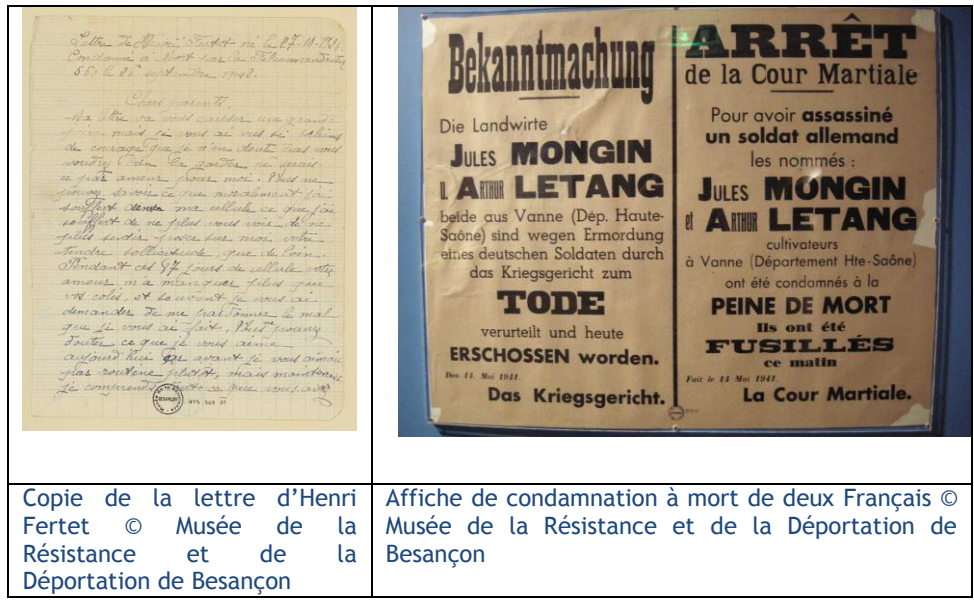 Lettre de Henri Fertet né le 27-10-
Condamné à Mort par la
le 26 septembre
Chers parents,
Ma lettre va vous causer une grande
peine mais je vous ai vus si pleins
de courage que je n'en doute pas vous
voudrez bien la garder ne serait
ce par amour pour moi. Vous ne
pouvez savoir ce que moralement j'ai
souffert dans ma cellule ce que j'ai
souffert de ne plus vous voir de ne
plus sentir peser sur moi votre
tendre sollicitude, que de loin.
Pendant ces 87 jours de cellule votre
amour m'a manquer plus que
vos colis, et souvent je vous ai
demander de me pardonner le mal
que je vous ai fait. Vous ne pouvez
douter ce que je vous aime
aujourd'hui car avant je vous aimais
par routine plutôt, mais maintenant
je comprends tout ce que vous avez
BESANÇON
Bekanntmachung
Die Landwirte
JULES MONGIN
U. ARTHUR LETANG
beide aus Vanne (Dép. Haute-
Saône) sind wegen Ermordung
eines deutschen Soldaten durch
das Kriegsgericht zum
TODE
verurteilt und heute
ERSCHOSSEN worden.
Den 14. Mai 1941.
Das Kriegsgericht.
ARRÊT
de la Cour Martiale
Pour avoir assassiné
un soldat allemand
les nommés :
JULES MONGIN
et ARTHUR LETANG
cultivateurs
à Vanne (Département Hte-Saône)
ont été condamnés à la
PEINE DE MORT
Ils ont été
FUSILLÉS
ce matin
Fait le 14 Mai 1941.
La Cour Martiale.
Copie de la lettre d’Henri
Fertet © Musée de la
Résistance et de la
Déportation de Besançon
Affiche de condamnation à mort de deux Français ©
Musée de la Résistance et de la Déportation de
Besançon